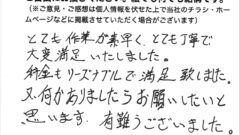 (※ご意見・ご感想は個人情報を伏せた上で当社のチラシ・ホー
ムページなどに掲載させていただく場合がございます)
とても作業が素早く、とても丁寧で
大変満足いたしました。
料金もリーズナブルで満足致しました。
又、何かありましたらお願いしたいと
思います。有難うございました